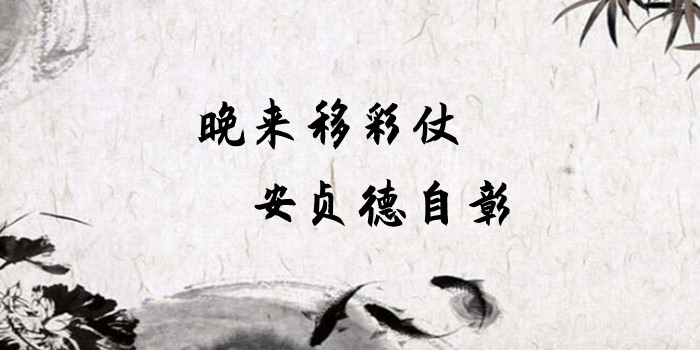 晚来移彩仗
安贞德自彰